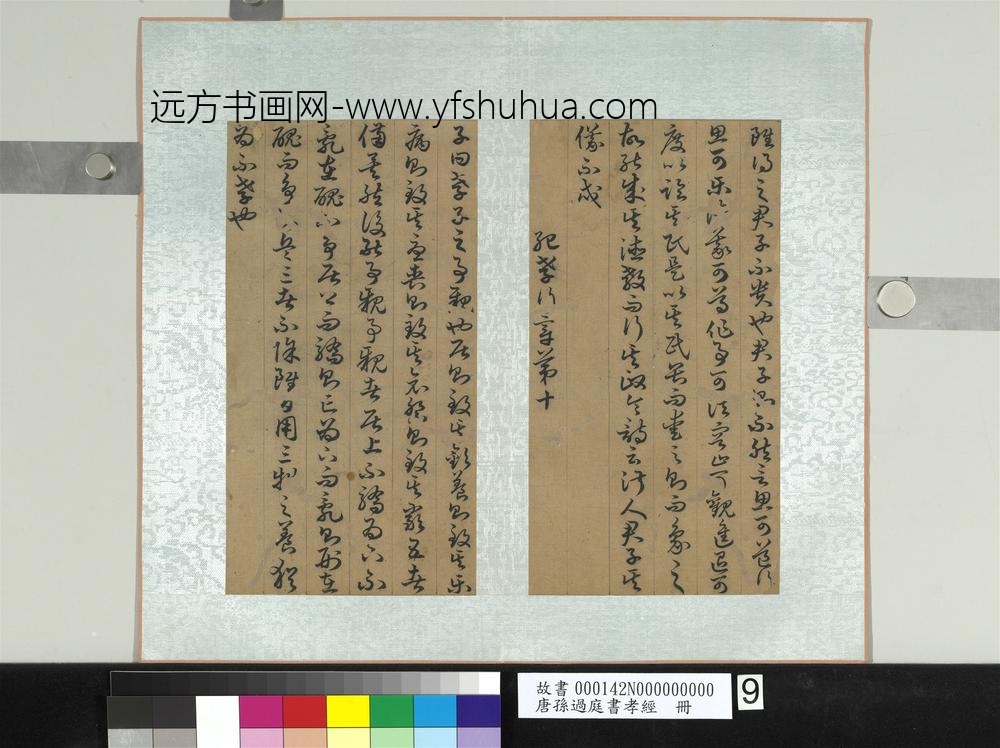 远方书画网-www.yfshuhua.com
雖得之君子不貴也君子則不然言思可道行
思可樂義可尊作事可法容止可觀進退可
度以臨其民是以其民畏而愛之則而象之
故能成其德教而行其政令詩云淑人君子其
儀不忒
紀孝行章第十
子曰孝子之事親也居則致其敬養則致其樂
病則致其憂喪則致其哀祭則致其嚴五者
備矣然後能事親事親者居上不驕為下不
亂在醜不爭居上而驕則亡為下而亂則刑在
醜而爭則兵三者不除雖日用三牲之養猶
為不孝也
故書 000142N000000000
唐孫過庭書孝經 冊
9